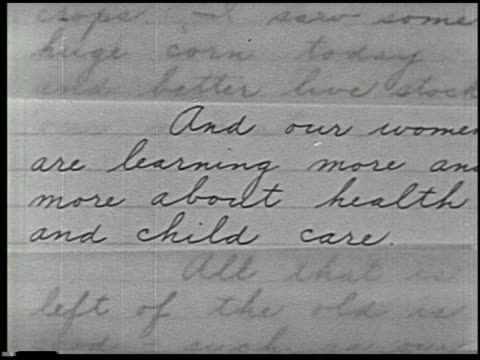 crops. I saw some
huge corn today
and better live stock
And our women
are learning more and
more about health
and child care.
All that is
left of the old is